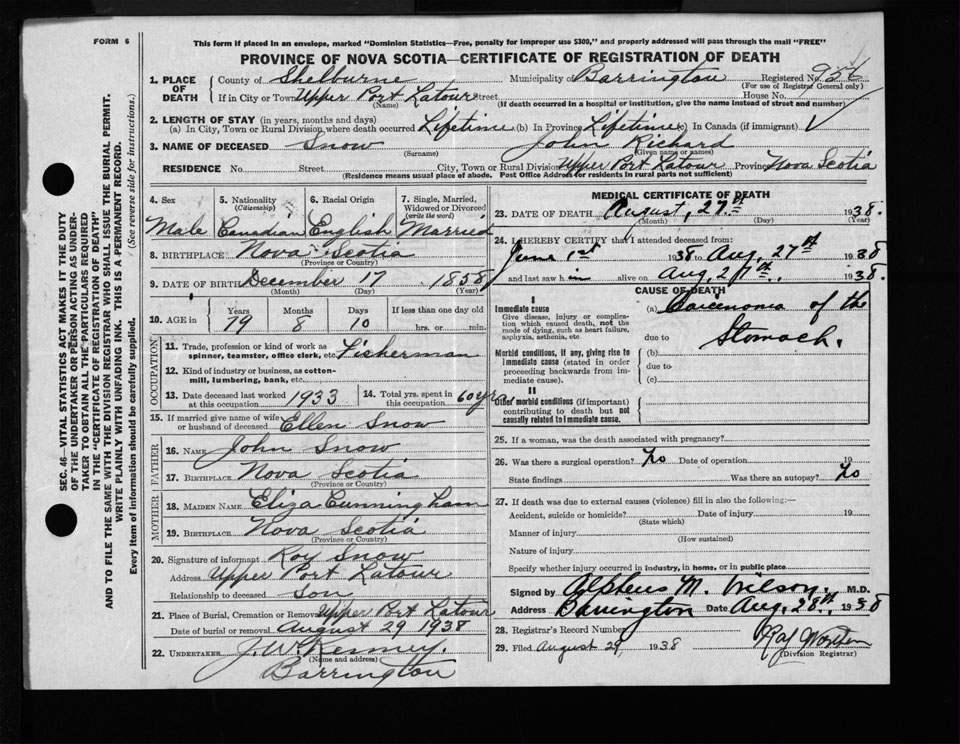 FORM 6
This form if placed in an envelope, marked "Dominion Statistics—Free, penalty for improper use $300," and properly addressed will pass through the mail "FREE"
PROVINCE OF NOVA SCOTIA—CERTIFICATE OF REGISTRATION OF DEATH
1. PLACE OF DEATH County of Shelburne Municipality of Barrington Registered No.
(For use of Registrar General only)
If in City or Town Upper Port Latour Street House No.
(Name) (If death occurred in a hospital or institution, give the name instead of street and number)
2. LENGTH OF STAY (in years, months and days)
(a) In City, Town or Rural Division where death occurred Lifetime (b) In Province Lifetime (c) In Canada (if immigrant)
3. NAME OF DECEASED Snow John Richard
(Surname) (Given name or names)
RESIDENCE No. Street City, Town or Rural Division Upper Port Latour Province Nova Scotia
(Residence means usual place of abode. Post Office Address for residents in rural parts not sufficient)
SEC. 46—VITAL STATISTICS ACT MAKES IT THE DUTY
OF THE UNDERTAKER OR PERSON ACTING AS UNDER-
TAKER TO OBTAIN ALL THE PARTICULARS REQUIRED
IN THE "CERTIFICATE OF REGISTRATION OF DEATH"
AND TO FILE THE SAME WITH THE DIVISION REGISTRAR WHO SHALL ISSUE THE BURIAL PERMIT.
WRITE PLAINLY WITH UNFADING INK. THIS IS A PERMANENT RECORD.
Every item of information should be carefully supplied. (See reverse side for instructions.)
4. Sex 5. Nationality 6. Racial Origin 7. Single, Married,
(Citizenship) Widowed or Divorced
(write the word)
Male Canadian English Married
8. BIRTHPLACE Nova Scotia
(Province or Country)
9. DATE OF BIRTH December 17 1858
(Month) (Day) (Year)
10. AGE in Years Months Days If less than one day old
79 8 10 hrs. or min.
OCCUPATION
11. Trade, profession or kind of work as
spinner, teamster, office clerk, etc. Fisherman
12. Kind of industry or business, as cotton-
mill, lumbering, bank, etc.
13. Date deceased last worked
at this occupation 1933
14. Total yrs. spent in
this occupation 60 yr
15. If married give name of wife
or husband of deceased Ellen Snow
FATHER
16. NAME John Snow
17. BIRTHPLACE Nova Scotia
(Province or Country)
MOTHER
18. MAIDEN NAME Eliza Cunningham
19. BIRTHPLACE Nova Scotia
(Province or Country)
20. Signature of informant Roy Snow
Address Upper Port Latour
Relationship to deceased Son
21. Place of Burial, Cremation or Removal Upper Port Latour
Date of burial or removal August 29 1938
22. UNDERTAKER J. W. Kenney.
(Name and address)
Barrington
MEDICAL CERTIFICATE OF DEATH
23. DATE OF DEATH August, 27th 1938.
(Month) (Day) (Year)
24. I HEREBY CERTIFY that I attended deceased from:
June 1st 1938 to Aug, 27th 1938
and last saw h im alive on Aug 27th, 1938.
CAUSE OF DEATH
I
Immediate cause (a) Carcinoma of the
Give disease, injury or complica-
tion which caused death, not the
mode of dying, such as heart failure,
asphyxia, asthenia, etc.
due to Stomach.
Morbid conditions, if any, giving rise to
immediate cause (stated in order
proceeding backwards from im-
mediate cause).
(b)
due to
(c)
II
Other morbid conditions (if important)
contributing to death but not
causally related to immediate cause.
25. If a woman, was the death associated with pregnancy?
26. Was there a surgical operation? No Date of operation 19
State findings Was there an autopsy? No
27. If death was due to external causes (violence) fill in also the following:—
Accident, suicide or homicide? Date of injury 19
(State which)
Manner of injury
(How sustained)
Nature of injury
Specify whether injury occurred in industry, in home, or in public place
Signed by Alpheus M. Wilson, M.D.
Address Barrington Date Aug. 28th, 1938
28. Registrar's Record Number
29. Filed August 29, 1938
(Division Registrar)